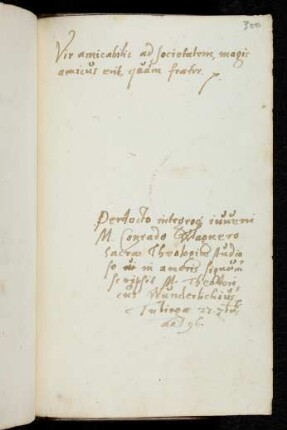 300
Vir amicabilis ad societatem, magis
amicus erit, quàm frater.
Perdocto integroq iuveni
M. Conrado Wagnero
Sacræ Theologiæ studio
so in amoris signum
scripsit M. Theodori
cus Wunderlichius
Tubingæ 27. 7br.
ao 96.